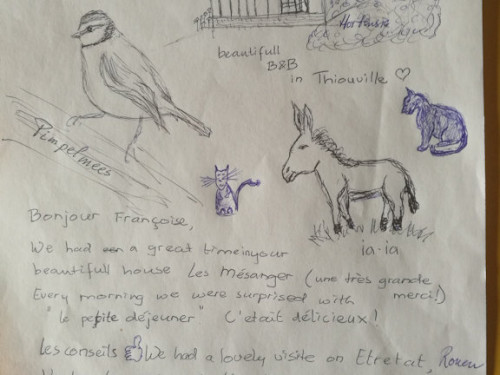 Hortensia
beautifull
B&B
in Thiouville ♡
Pimpelmees
ia-ia
Bonjour Françoise,
We had a great time in your
beautifull house Les Mésanger (une très grande
Every morning we were surprised with merci!)
"le petite déjeuner" C'etait délicieux!
Les conseils 👍 We had a lovely visite on Etretat, Rouen